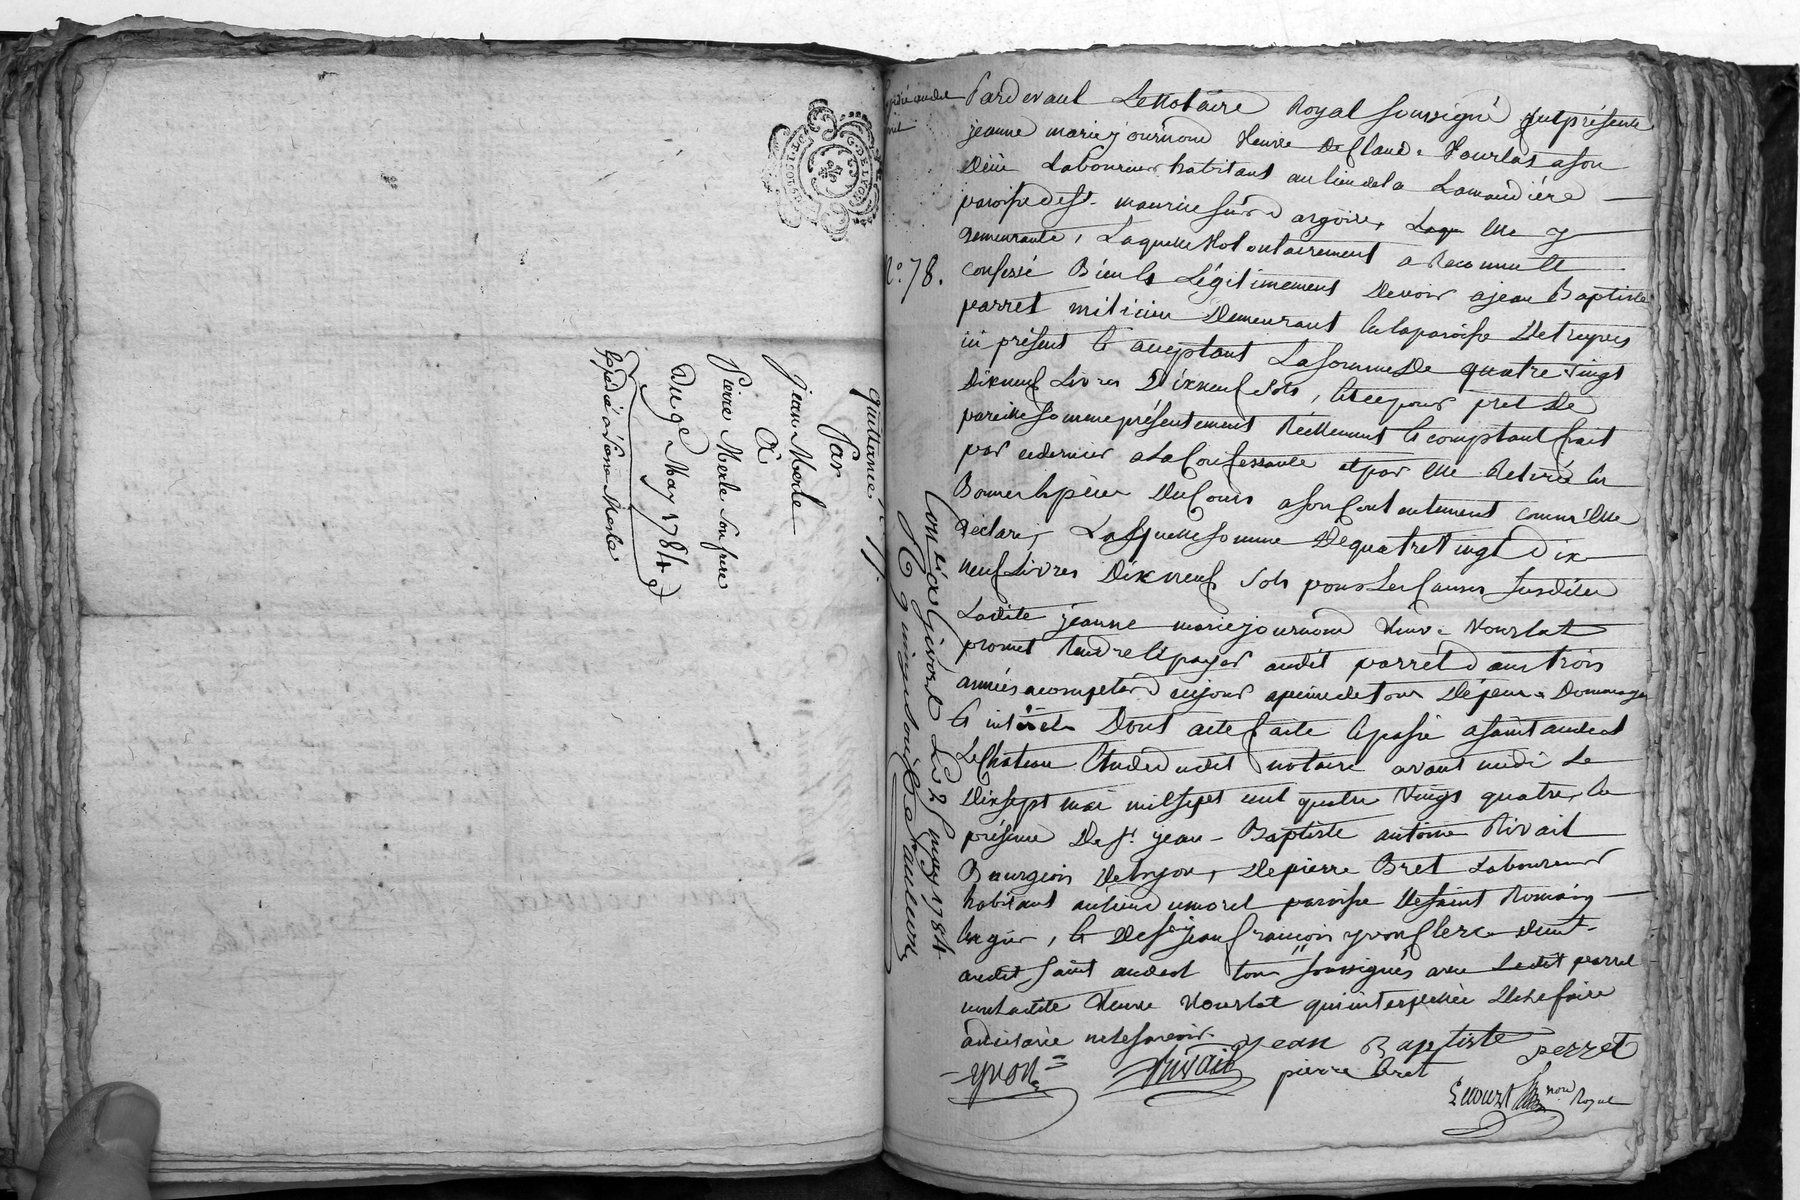 G. DE LYON
Quittance n° 77.
Par
Jean Merle
à
Pierre Merle son frere
Du 9e May 1784
Expédié à Pierre Merle
N° 78.
Pardevant Le Notaire Royal soussigné fut présente
jeanne marie journoud Veuve De Claude Vourlat a son
vivant Laboureur habitant au lieu de la Lamandiére
paroisse de St. maurice sur d'argoire, Laquelle y
demeurante, Laquelle Volontairement a Reconnu et
confessé Bien et Légitimement Devoir a jean Baptiste
parret miliciens Demeurant en la paroisse De treyves
ici présent et acceptant La somme De quatre vingt
Dixneuf Livres Dixneuf sols, et ce pour pret De
pareille somme présentement Réellement et comptant fait
par ce dernier a la Confessante et par elle Retiré en
Bonnes Espéces Du Cours a son Contentement comm'elle
Déclare, Laquelle somme De quatre Vingt Dix
neuf Livres Dixneuf sols pour Les Causes susdites
Ladite jeanne marie journoud Veuve Vourlat
promet Rendre et payer audit parrét dans trois
années a compter de ce jour a peine de tous Dépens Dommages
et intérets Dont acte fait et passé a saint andeol
Le Chateau Etude dudit notaire avant midi Le
Dixsept mai mil sept cent quatre Vingt quatre, en
présence De sr. jean-Baptiste antoine Rivait
Bourgeois De Lyon, De pierre Bret Laboureur
habitant au lieu du morel paroisse De saint Romain
en gier, et De sr. jean françois yvon Clerc Demt.
audit saint andeol tous soussignés avec Ledit parret
non Ladite Veuve Vourlat qui interpellée De le faire
a déclaré ne le savoir.
jean Baptiste perret
yvon
Rivait
pierre bret
nore Royal
Controlé a Givord Le 25 may 1784
R. quinze sols